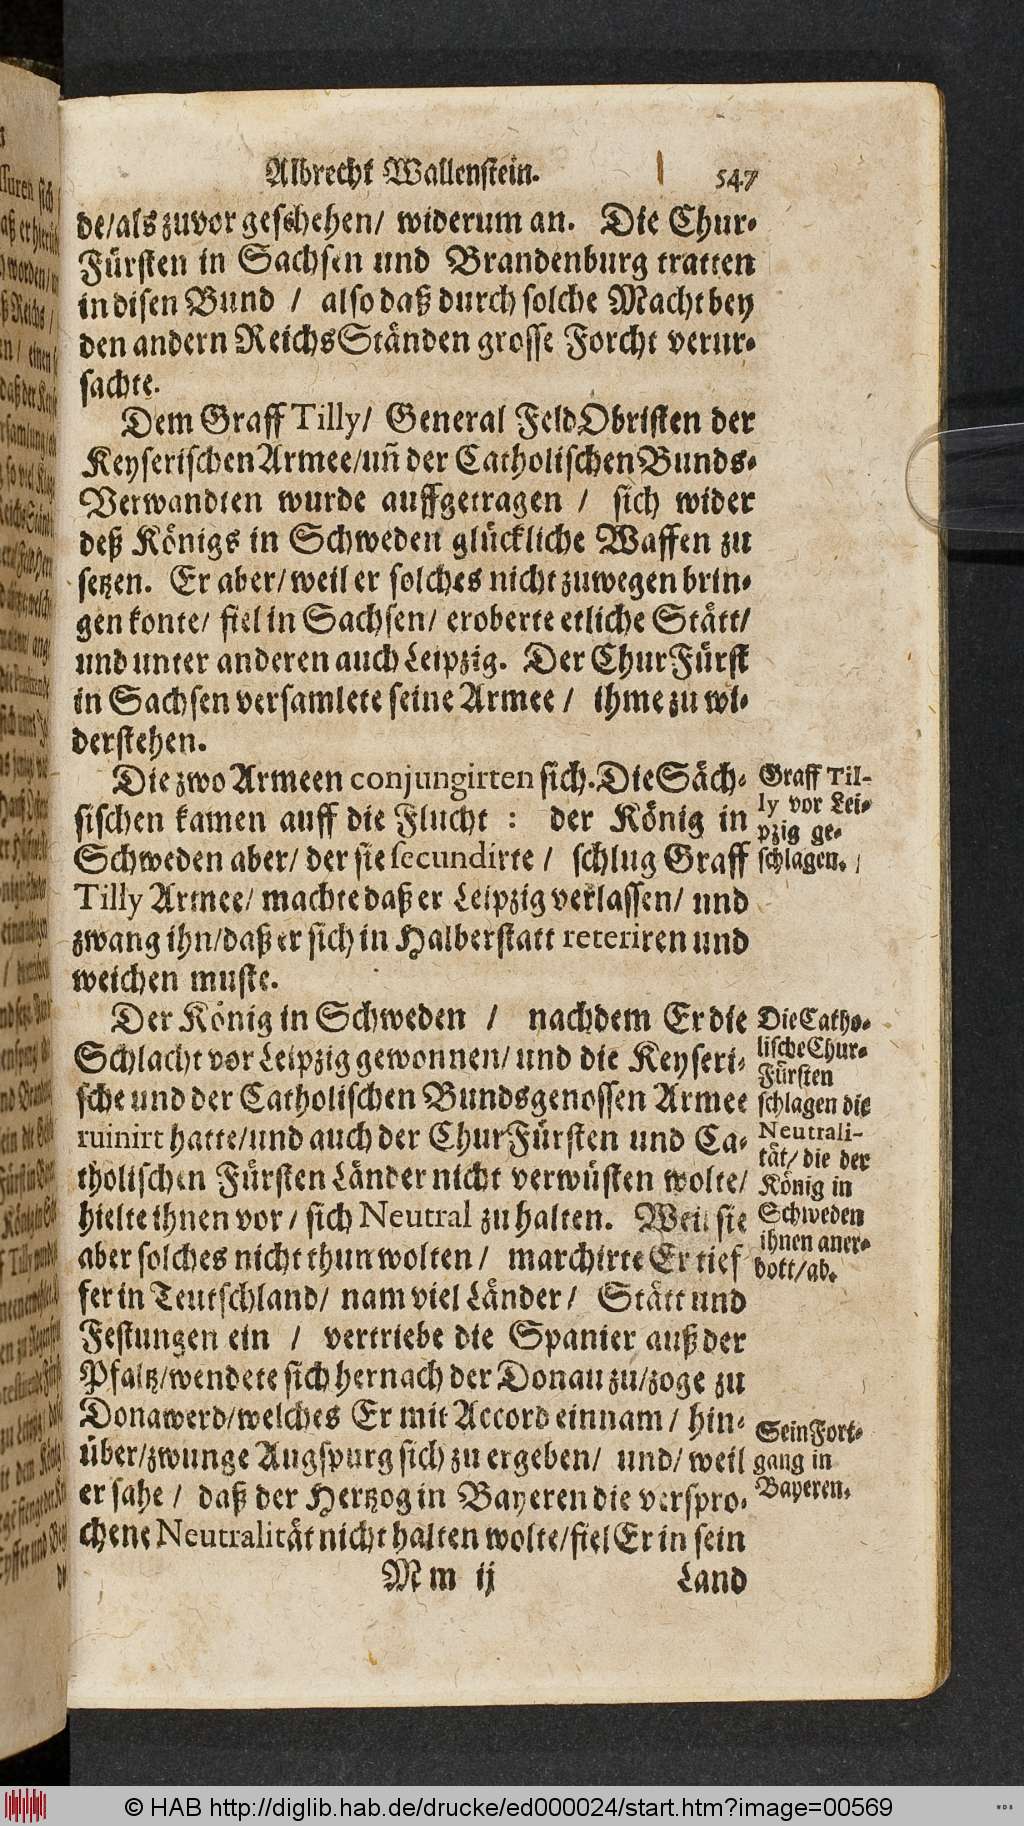 Albrecht Wallenstein. 547
de/als zuvor geschehen/ widerum an. Die Chur-
Fürsten in Sachsen und Brandenburg tratten
in disen Bund / also daß durch solche Macht bey
den andern ReichsStänden grosse Forcht verur-
sachte.
Dem Graff Tilly/ General FeldObristen der
Keyserischen Armee/uñ der Catholischen Bunds-
Verwandten wurde auffgetragen / sich wider
deß Königs in Schweden glückliche Waffen zu
setzen. Er aber/ weil er solches nicht zuwegen brin-
gen konte/ fiel in Sachsen/ eroberte etliche Stätt/
und unter anderen auch Leipzig. Der ChurFürst
in Sachsen versamlete seine Armee / ihme zu wi-
derstehen.
Die zwo Armeen conjungirten sich. Die Säch-
sischen kamen auff die Flucht : der König in
Schweden aber/ der sie secundirte / schlug Graff
Tilly Armee/ machte daß er Leipzig verlassen/ und
zwang ihn/daß er sich in Halberstatt reteriren und
weichen muste.
Graff Til-
ly vor Lei-
pzig ge-
schlagen.
Der König in Schweden / nachdem Er die
Schlacht vor Leipzig gewonnen/ und die Keyseri-
sche und der Catholischen Bundsgenossen Armee
ruinirt hatte/und auch der ChurFürsten und Ca-
tholischen Fürsten Länder nicht verwüsten wolte/
hielte ihnen vor/ sich Neutral zu halten. Weil sie
aber solches nicht thun wolten / marchirte Er tief
fer in Teutschland/ nam viel Länder/ Stätt und
Festungen ein / vertriebe die Spanier auß der
Pfaltz/wendete sich hernach der Donau zu/zoge zu
Donawerd/welches Er mit Accord einnam / hin-
über/zwunge Augspurg sich zu ergeben/ und/ weil
er sahe / daß der Hertzog in Bayeren die verspro-
chene Neutralität nicht halten wolte/fiel Er in sein
Die Catho-
lische Chur-
Fürsten
schlagen die
Neutrali-
tät/ die der
König in
Schweden
ihnen aner-
bott/ab.
Sein Fort-
gang in
Bayeren.
M m ij Land
© HAB http://diglib.hab.de/drucke/ed000024/start.htm?image=00569